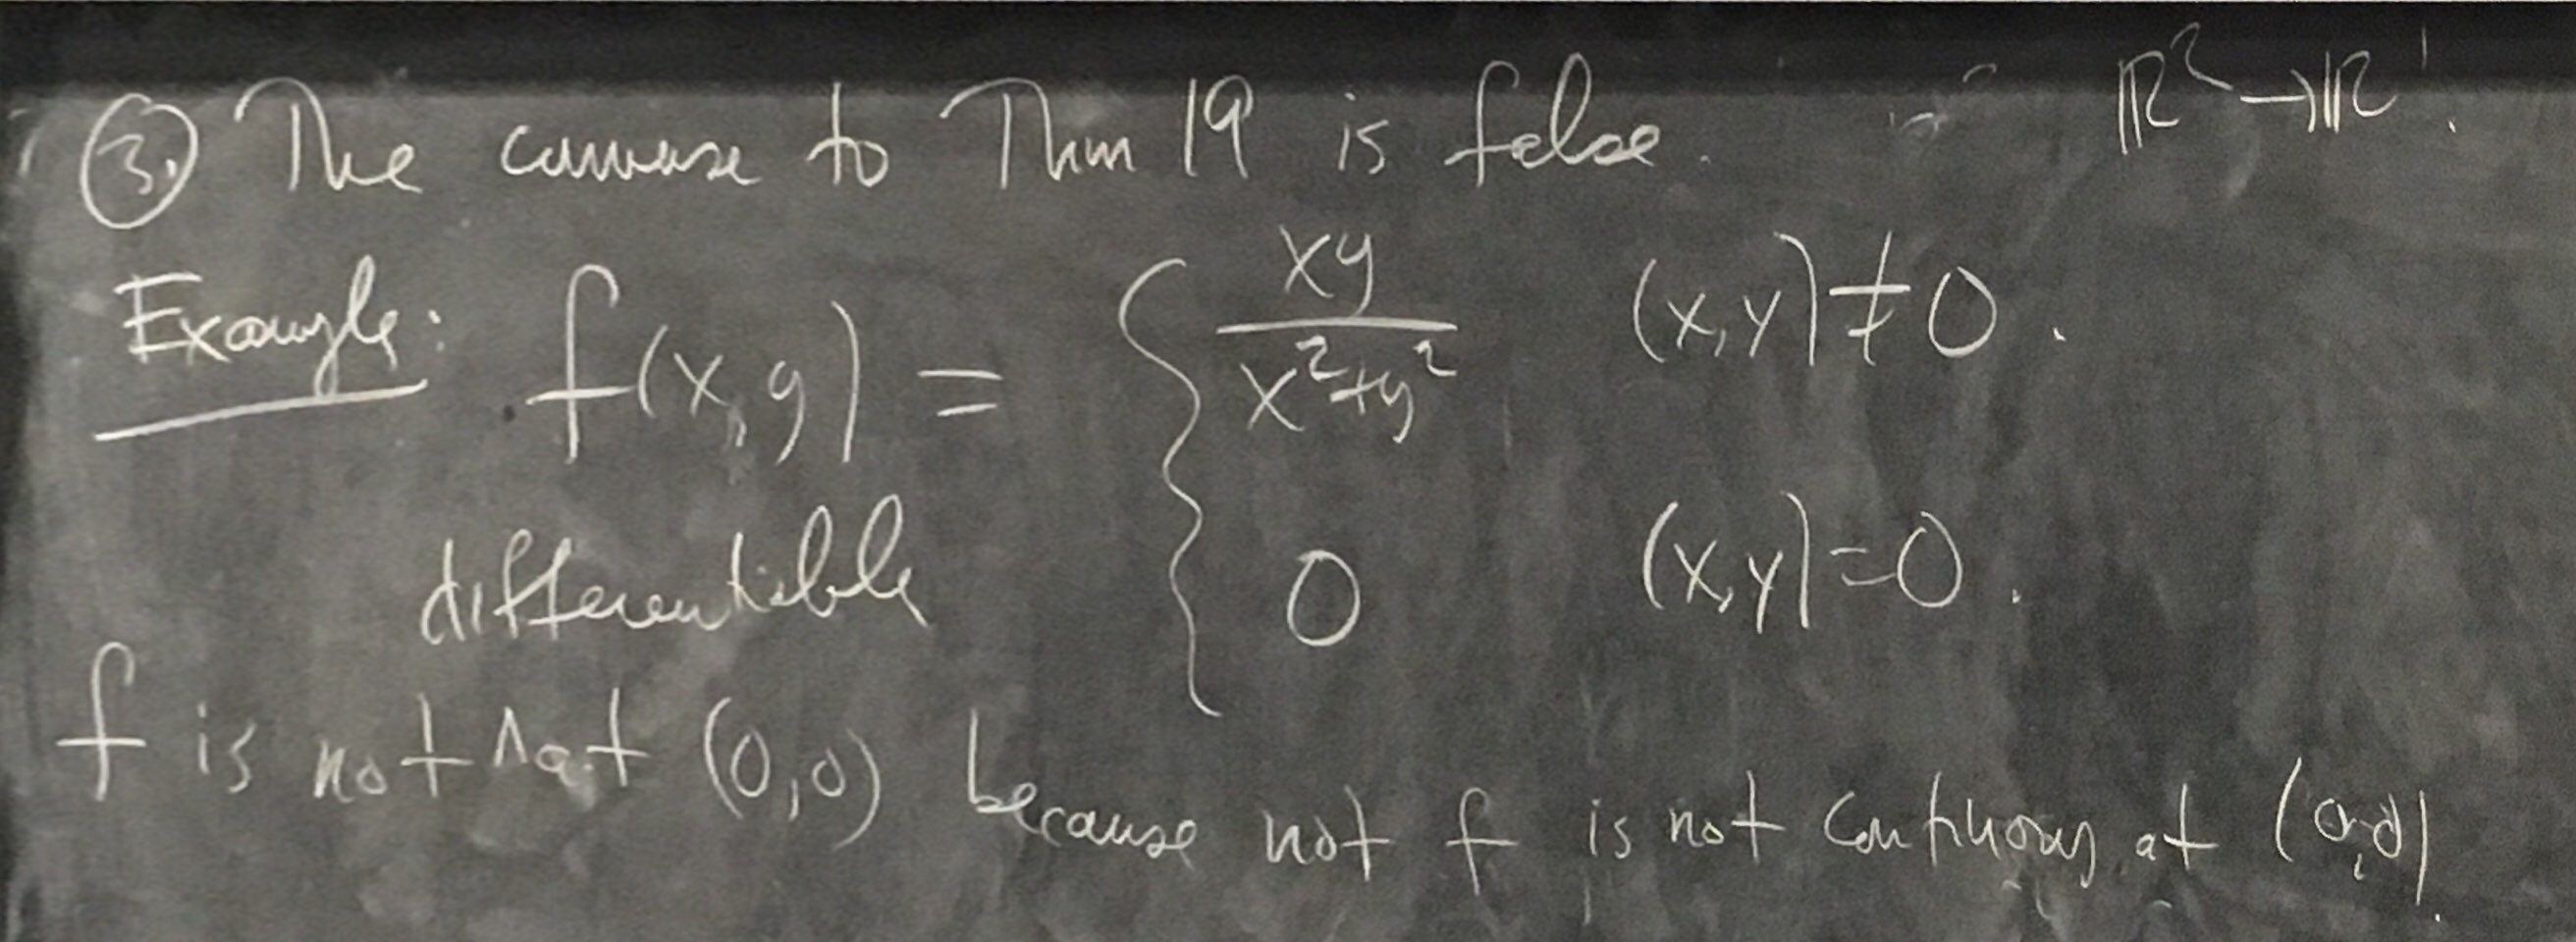 ③. The converse to Thm 19 is false. ℝ² → ℝ¹.
Example: f(x,y) = { xy / x²+y² (x,y) ≠ 0.
0 (x,y) = 0.
differentiable
f is not ^ at (0,0) because not f is not continuous at (0,0).